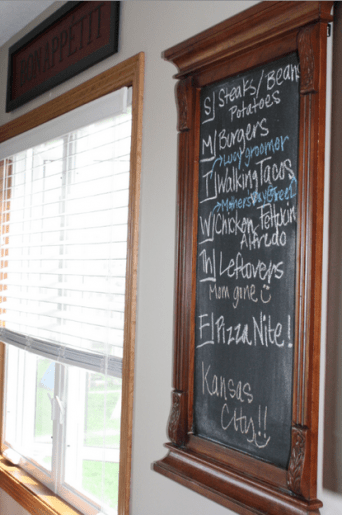 BON APPÉTIT
S] Steaks/Beans
Potatoes
M] Burgers
→ Lucy groomer
T] Walking Tacos
→ Mothers Day
W] Chicken
Alfredo
Th] Leftovers
Mom gone ☺
F] Pizza Nite!
Kansas
City!! ☺